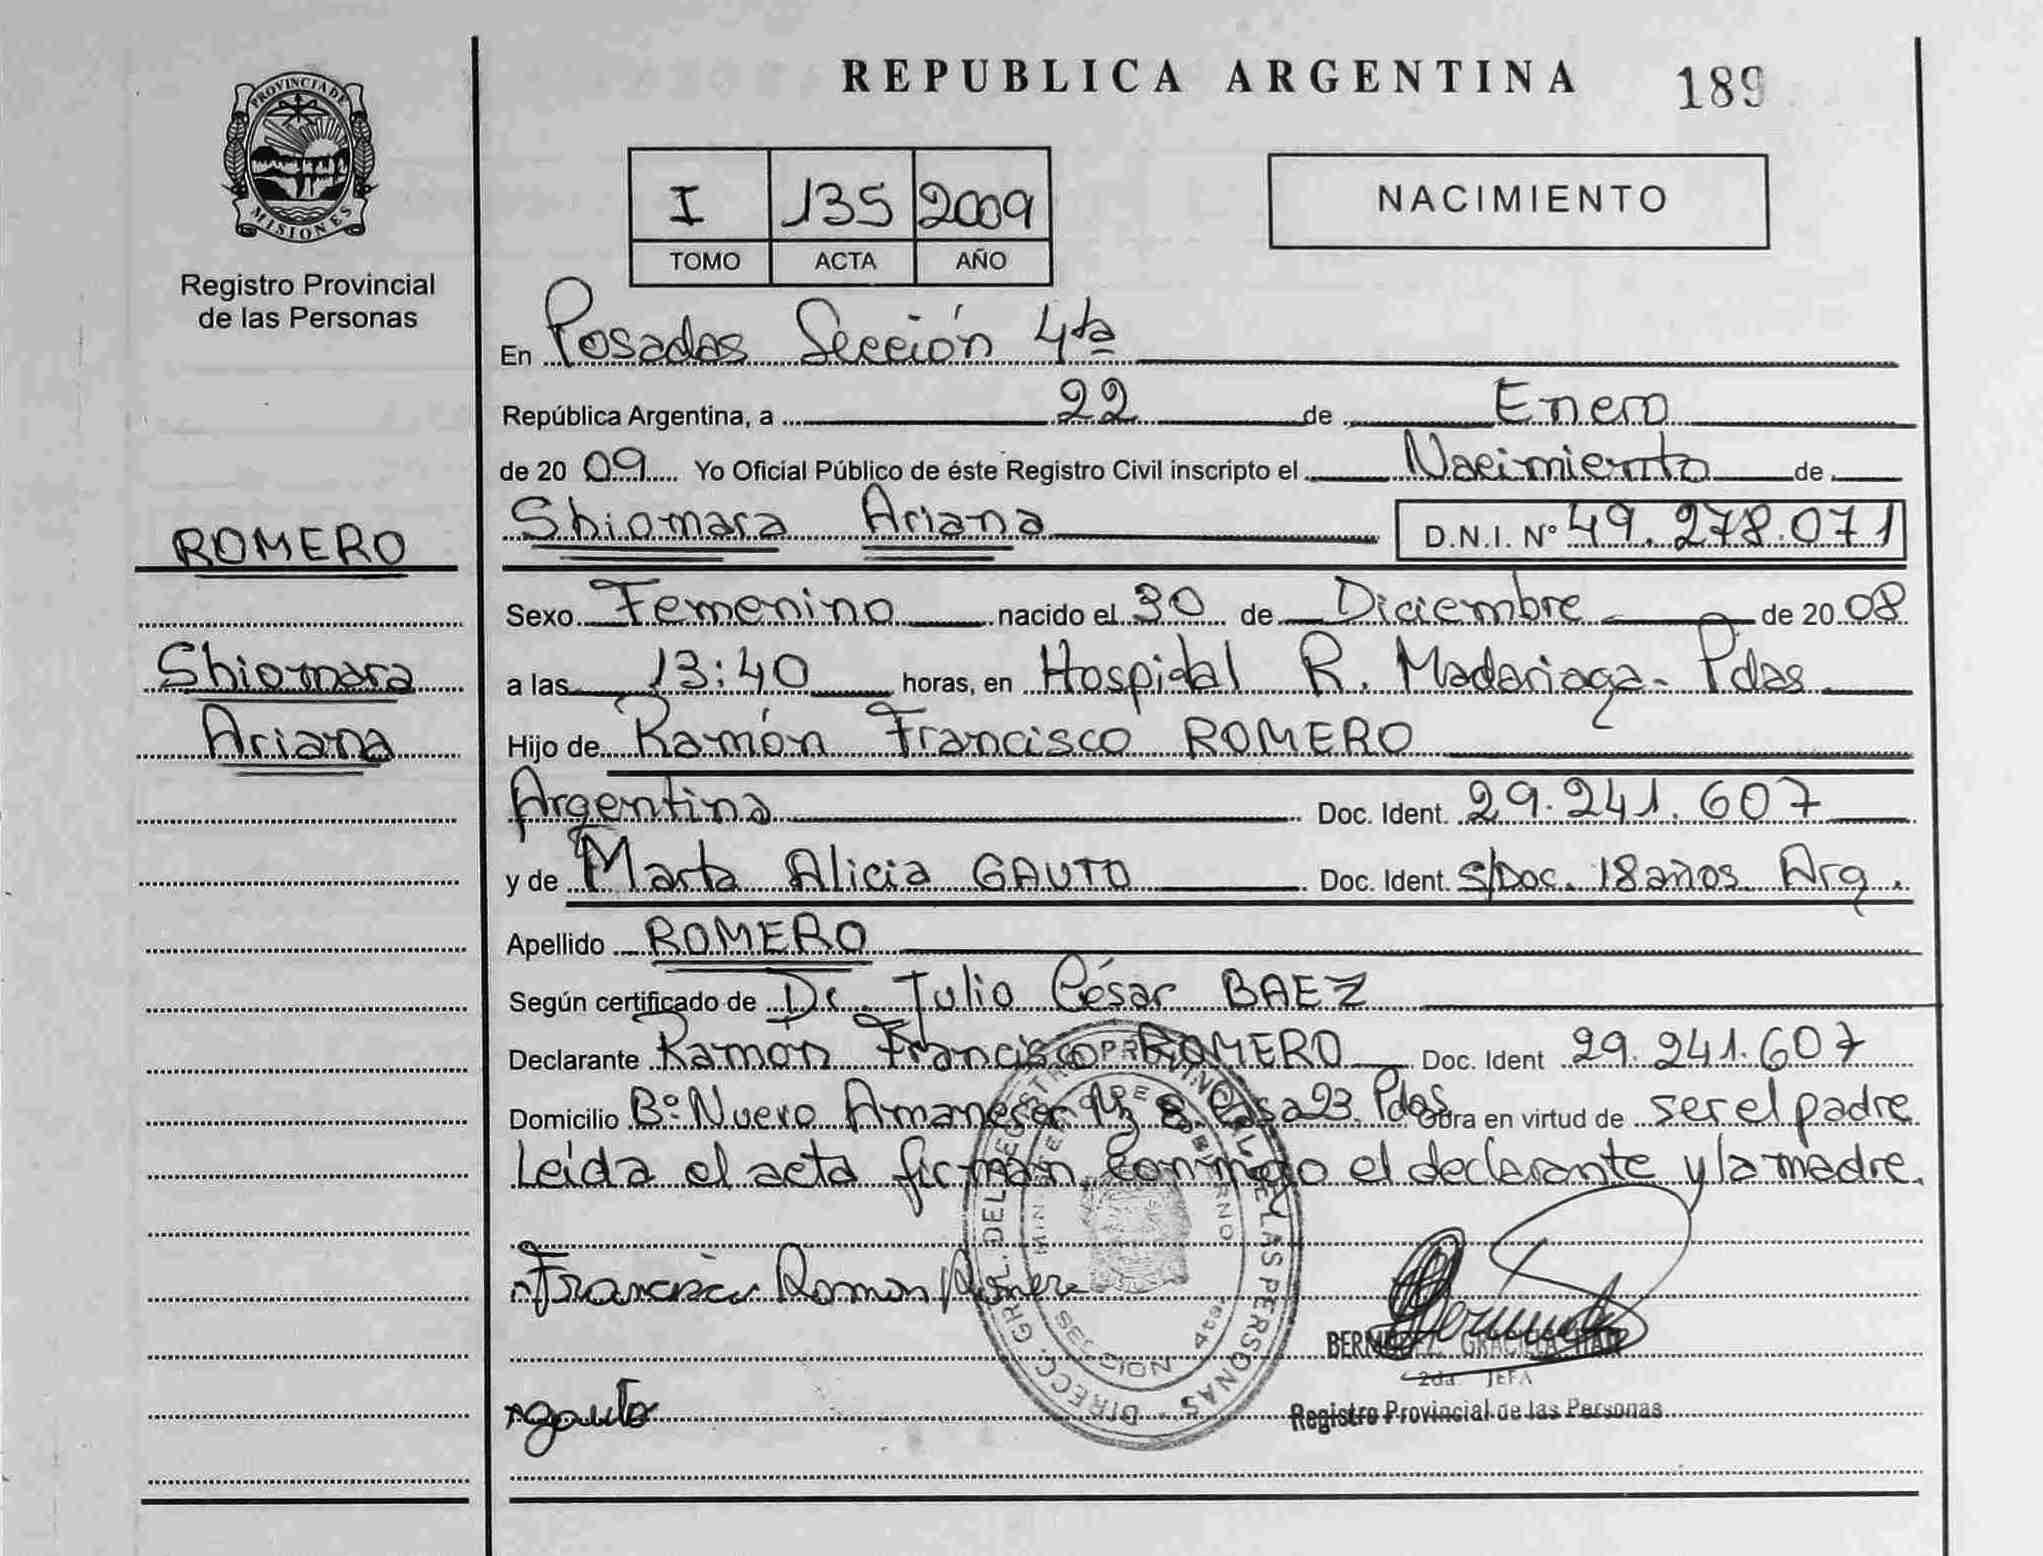 REPUBLICA ARGENTINA 189
PROVINCIA DE MISIONES
Registro Provincial
de las Personas
I 135 2009
TOMO ACTA AÑO
NACIMIENTO
En Posadas Sección 4ta
República Argentina, a 22 de Enero
de 2009 Yo Oficial Público de éste Registro Civil inscripto el Nacimiento de
Shiomara Ariana D.N.I. Nº 49.278.071
ROMERO
Shiomara
Ariana
Sexo Femenino nacido el 30 de Diciembre de 2008
a las 13:40 horas, en Hospital R. Madariaga - Pdas
Hijo de Ramón Francisco ROMERO
Argentina Doc. Ident. 29.241.607
y de Marta Alicia GAUTO Doc. Ident. S/Doc. 18 años Arg.
Apellido ROMERO
Según certificado de Dr. Julio César BAEZ
Declarante Ramón Francisco ROMERO Doc. Ident 29.241.607
Domicilio Bº Nuevo Amanecer Mz 8 Casa 23. Pdas Obra en virtud de ser el padre
Leída el acta firman conmigo el declarante y la madre.
DIRECC. GRAL. DEL REGISTRO PROVINCIAL DE LAS PERSONAS
MINISTERIO DE GOBIERNO
SECCION 4ta
Francisco Ramon Romero
BERMUDEZ GRACIELA
2da JEFA
Registro Provincial de las Personas
gauto